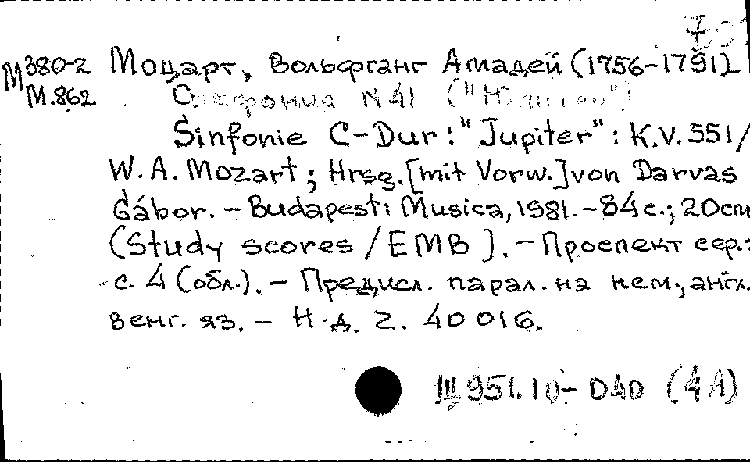 М380-2 Моцарт, Вольфганг Амадей (1756-1791)
М.862 Симфония N 41 ("Юпитер")
Sinfonie C-Dur: "Jupiter": K.V. 551/
W. A. Mozart; Hrsg. [mit Vorw.] von Darvas
Gábor. - Budapest: Musica, 1981. - 84 с.; 20 cm
(Study scores / EMB). - Проспект сер.:
с. 4 (обл.). - Предисл. парал. на нем., англ.
венг. яз. - Н.д. Z. 40 016.
Щ951.10-040 (4А)